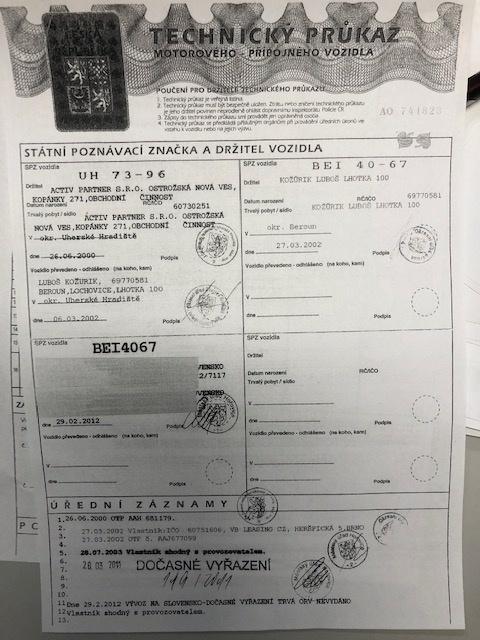 ČESKÁ
REPUBLIKA
TECHNICKÝ PRŮKAZ
MOTOROVÉHO - PŘÍPOJNÉHO VOZIDLA
POUČENÍ PRO DRŽITELE TECHNICKÉHO PRŮKAZU
1. Technický průkaz je veřejná listina.
2. Technický průkaz musí být bezpečně uložen. Ztrátu nebo zničení technického průkazu
je jeho držitel povinen neprodleně ohlásit dopravnímu inspektorátu Policie ČR.
3. Zápisy do technického průkazu smí provádět jen oprávněná osoba.
4. Technický průkaz se předkládá příslušným orgánům při provádění úředních úkonů ve
vztahu k vozidlu nebo na jejich výzvu.
AO 741823
STÁTNÍ POZNÁVACÍ ZNAČKA A DRŽITEL VOZIDLA
SPZ vozidla
UH 73-96
Držitel
ACTIV PARTNER S.R.O. OSTROŽSKÁ NOVÁ VES,
KOPÁNKY 271, OBCHODNÍ ČINNOST
Datum narození RČ/IČO 60730251
Trvalý pobyt / sídlo
ACTIV PARTNER S.R.O. OSTROŽSKÁ
NOVÁ VES, KOPÁNKY 271, OBCHODNÍ ČINNOST
V okr. Uherské Hradiště
dne 26.06.2000 Podpis
Vozidlo převedeno - odhlášeno (na koho, kam)
LUBOŠ KOŽURIK, 69770581
BEROUN, LOCHOVICE, LHOTKA 100
V okr. Uherské Hradiště
dne 06.03.2002 Podpis
SPZ vozidla
BEI 40-67
Držitel
KOŽURIK LUBOŠ LHOTKA 100
Datum narození RČ/IČO 69770581
Trvalý pobyt / sídlo
KOŽURIK LUBOŠ LHOTKA 100
V okr. Beroun
dne 27.03.2002 Podpis
Vozidlo převedeno - odhlášeno (na koho, kam)
V
dne Podpis
SPZ vozidla
BEI4067
2/7117
dne 29.02.2012 Podpis
Vozidlo převedeno - odhlášeno (na koho, kam)
V
dne Podpis
SPZ vozidla
Držitel
Datum narození RČ/IČO
Trvalý pobyt / sídlo
V
dne Podpis
Vozidlo převedeno - odhlášeno (na koho, kam)
V
dne Podpis
ÚŘEDNÍ ZÁZNAMY
1. 26.06.2000 OTP AAH 681179.
2. 27.03.2002 Vlastník:IČO 60751606, VB LEASING CZ, HERŠPICKÁ 5,BRNO
3. 27.03.2002 OTP č. AAJ677099
4.
5. 28.07.2003 Vlastník shodný s provozovatelem.
6. 28 03 2011 DOČASNÉ VYŘAZENÍ
7.
8.
9.
10.
11 Dne 29.2.2012 VÝVOZ NA SLOVENSKO-DOČASNÉ VYŘAZENÍ TRVÁ ORV NEVYDÁNO
12 Vlastník shodný s provozovatelem.
13.